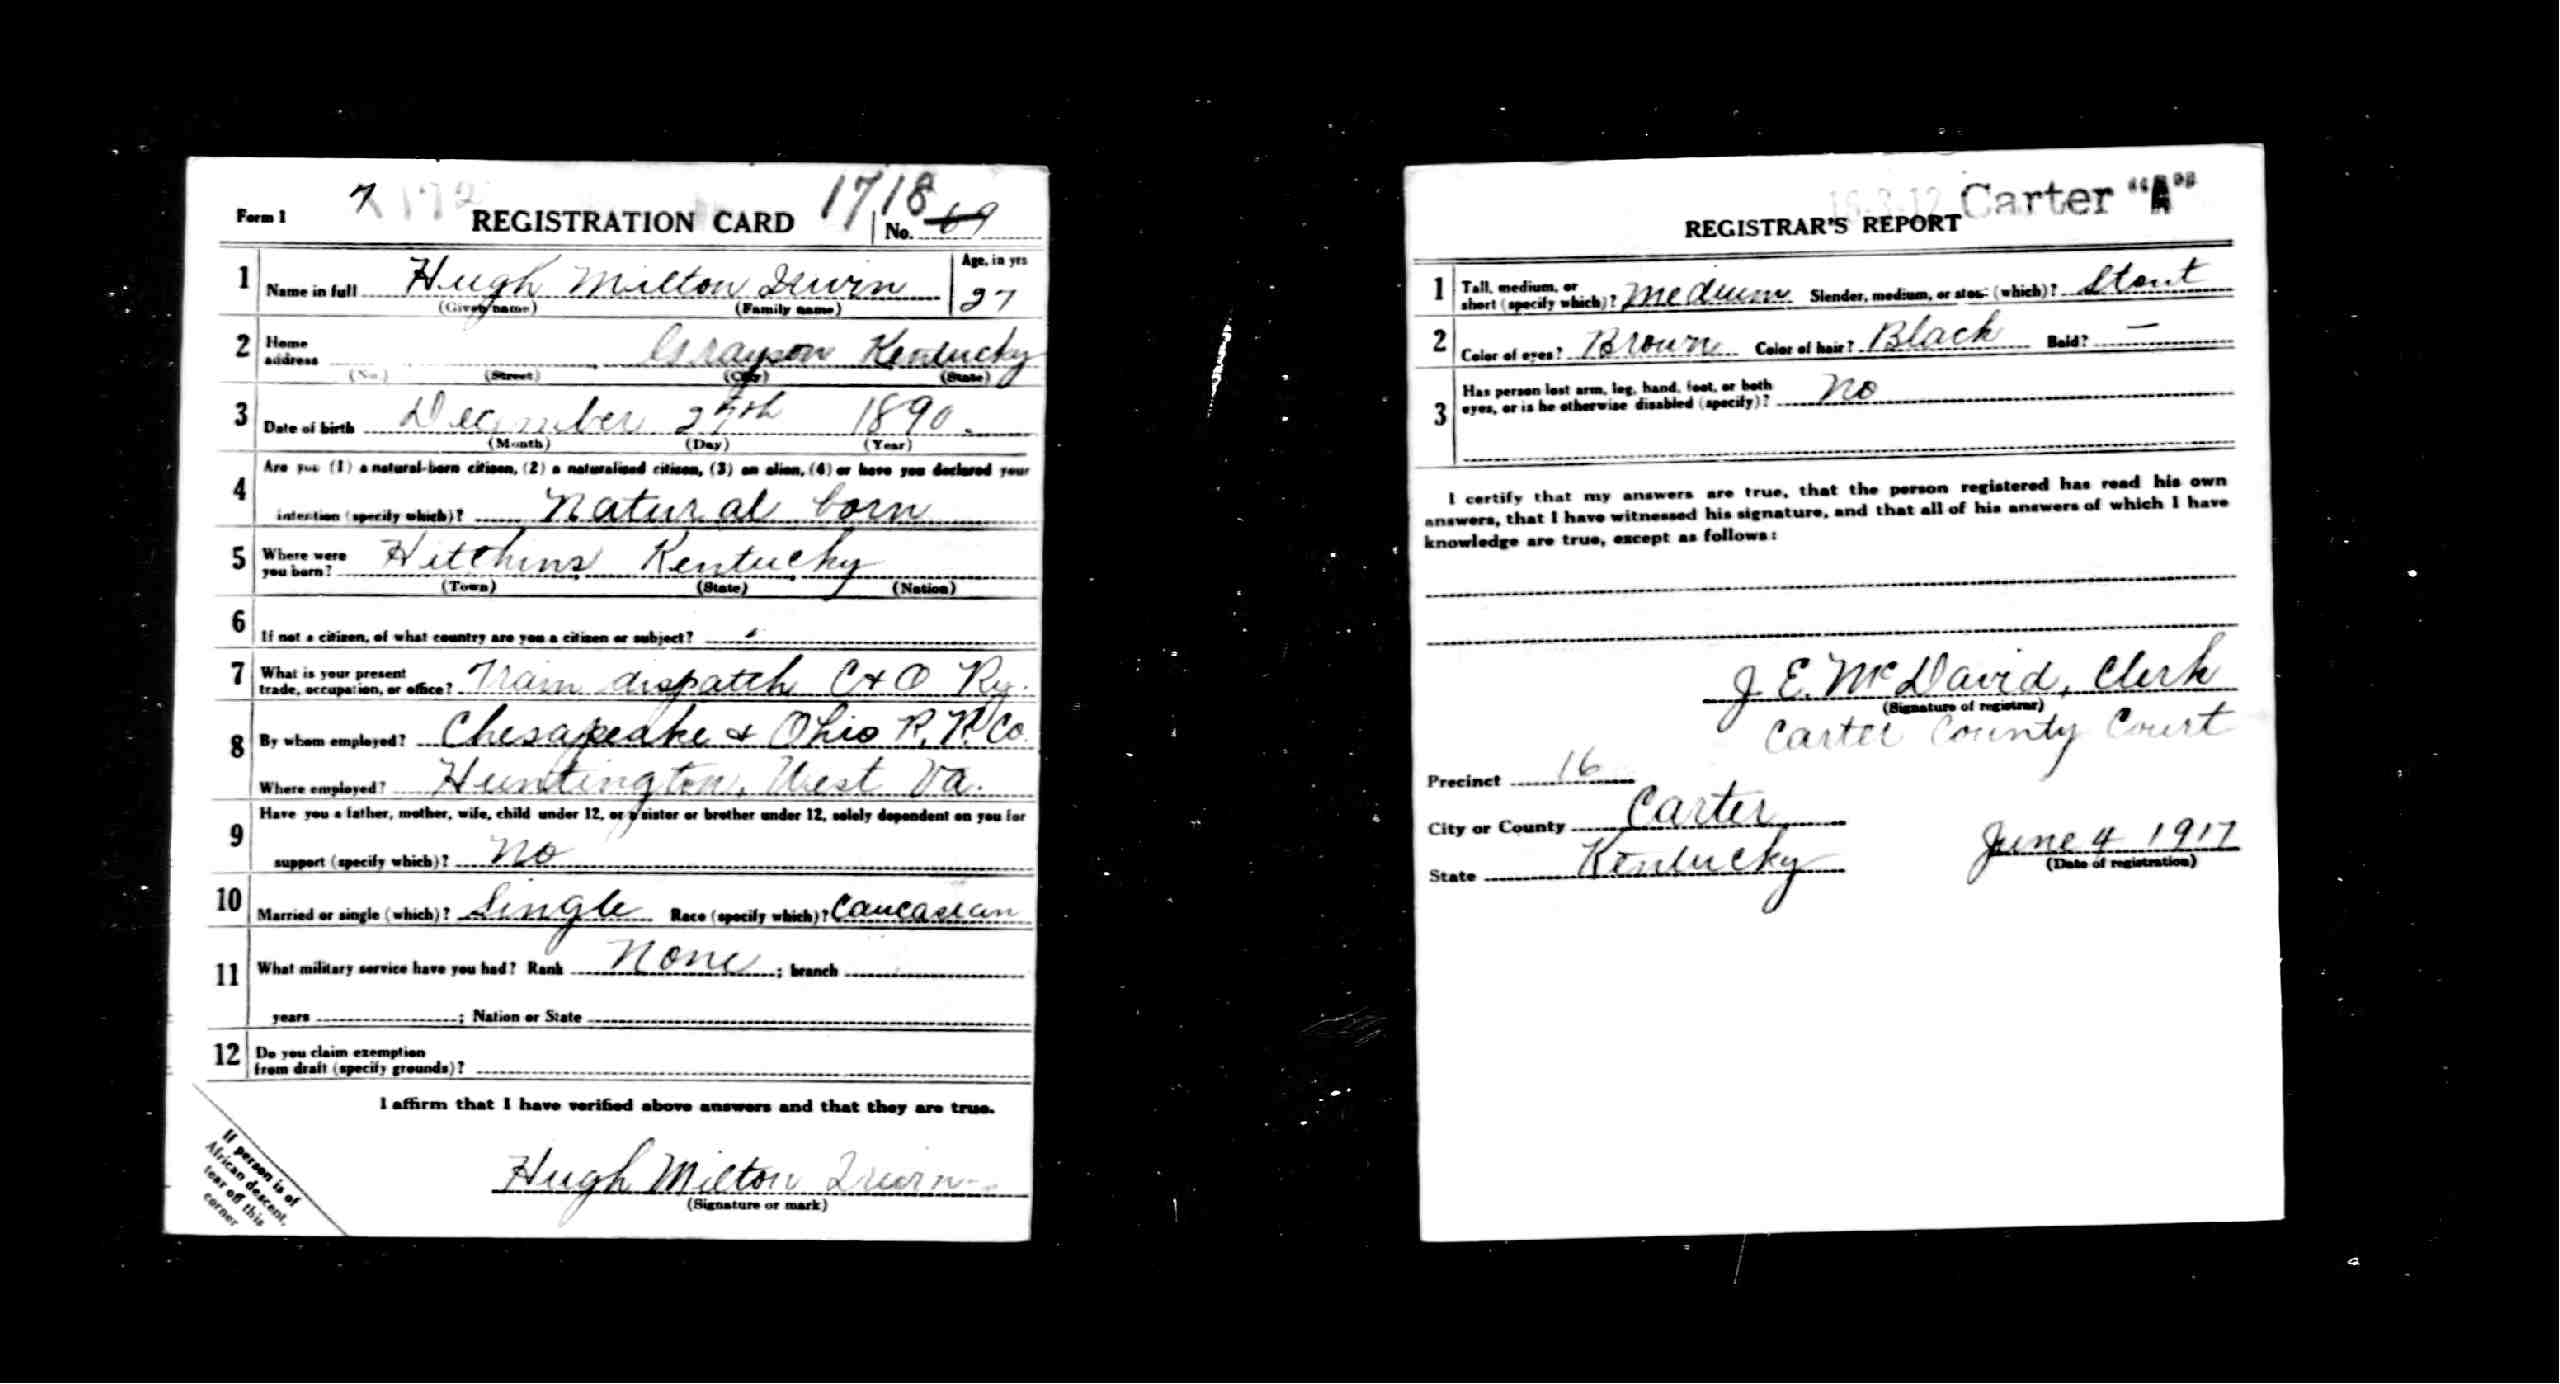 Form 1
7
REGISTRATION CARD
1718
No. 69
1 Name in full Hugh Milton Irwin
(Given name) (Family name)
Age, in yrs
27
2 Home address Grayson Kentucky
(No.) (Street) (City) (State)
3 Date of birth December 27th 1890
(Month) (Day) (Year)
4 Are you (1) a natural-born citizen, (2) a naturalized citizen, (3) an alien, (4) or have you declared your
intention (specify which)? Natural born
5 Where were you born? Hitchins Kentucky
(Town) (State) (Nation)
6 If not a citizen, of what country are you a citizen or subject?
7 What is your present
trade, occupation, or office? Train dispatch C+O Ry.
8 By whom employed? Chesapeake + Ohio R. R. Co.
Where employed? Huntington, West Va.
9 Have you a father, mother, wife, child under 12, or a sister or brother under 12, solely dependent on you for
support (specify which)? No
10 Married or single (which)? Single Race (specify which)? Caucasian
11 What military service have you had? Rank None ; branch
years ; Nation or State
12 Do you claim exemption
from draft (specify grounds)?
I affirm that I have verified above answers and that they are true.
Hugh Milton Irwin
(Signature or mark)
If person is of
African descent,
tear off this
corner
Carter "A"
REGISTRAR'S REPORT
1 Tall, medium, or
short (specify which)? Medium Slender, medium, or stout (which)? Stout
2 Color of eyes? Brown Color of hair? Black Bald? —
3 Has person lost arm, leg, hand, foot, or both
eyes, or is he otherwise disabled (specify)? No
I certify that my answers are true, that the person registered has read his own
answers, that I have witnessed his signature, and that all of his answers of which I have
knowledge are true, except as follows:
J. E. McDavid, Clerk
(Signature of registrar)
Carter County Court
Precinct 16
City or County Carter
State Kentucky
June 4 1917
(Date of registration)